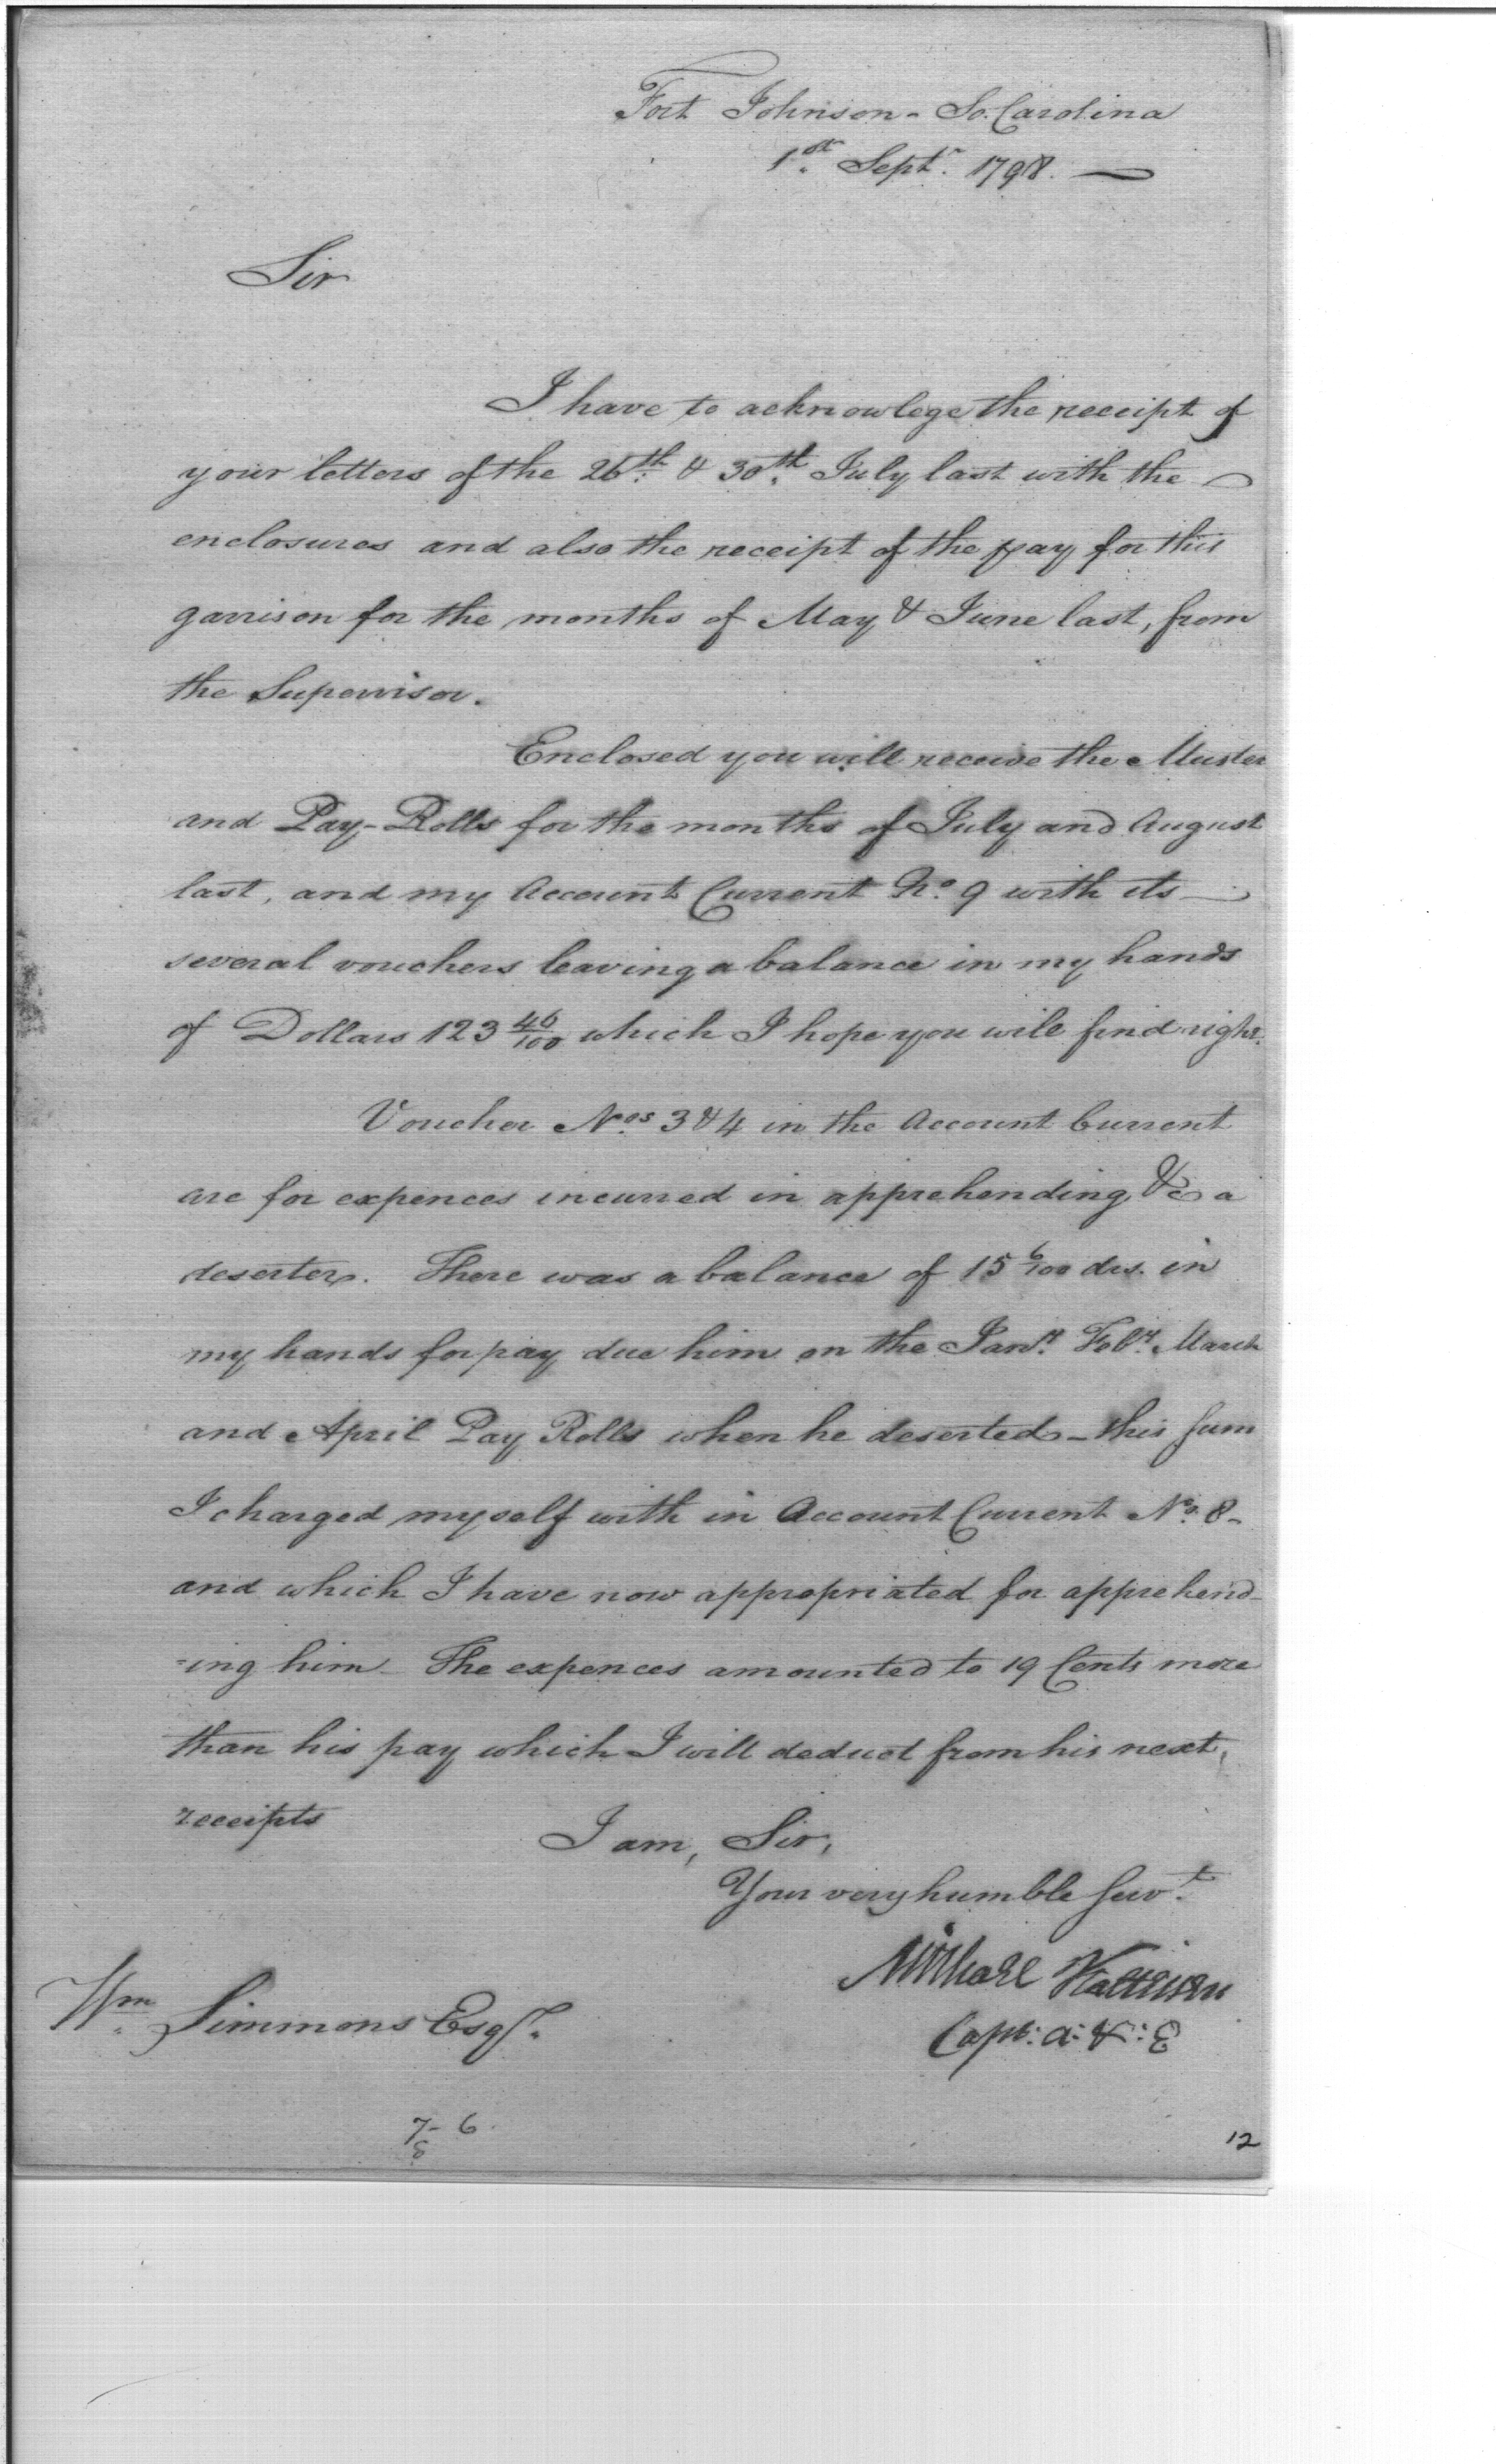 Fort Johnson - So. Carolina
1st. Septr. 1798. —
Sir
I have to acknowlege the receipt of
your letters of the 26th. & 30th. July last with the
enclosures and also the receipt of the pay for this
garrison for the months of May & June last, from
the Supervisor.
Enclosed you will receive the Muster
and Pay-Rolls for the months of July and August
last, and my Account Current No. 9 with its
several vouchers leaving a balance in my hands
of Dollars 123 46/100 which I hope you will find right.
Voucher Nos. 3 & 4 in the Account Current
are for expences incurred in apprehending &c a
deserter. There was a balance of 15 6/100 drs. in
my hands for pay due him on the Jany. Feby. March
and April Pay Rolls when he deserted - this sum
I charged myself with in Account Current No. 8 -
and which I have now appropriated for apprehend-
=ing him - The expences amounted to 19 Cents more
than his pay which I will deduct from his next,
receipts
I am, Sir,
Your very humble Servt.
Michael Kalteisen
Capt: A: & : E
Wm. Simmons Esqr.
7- 6.
8
12